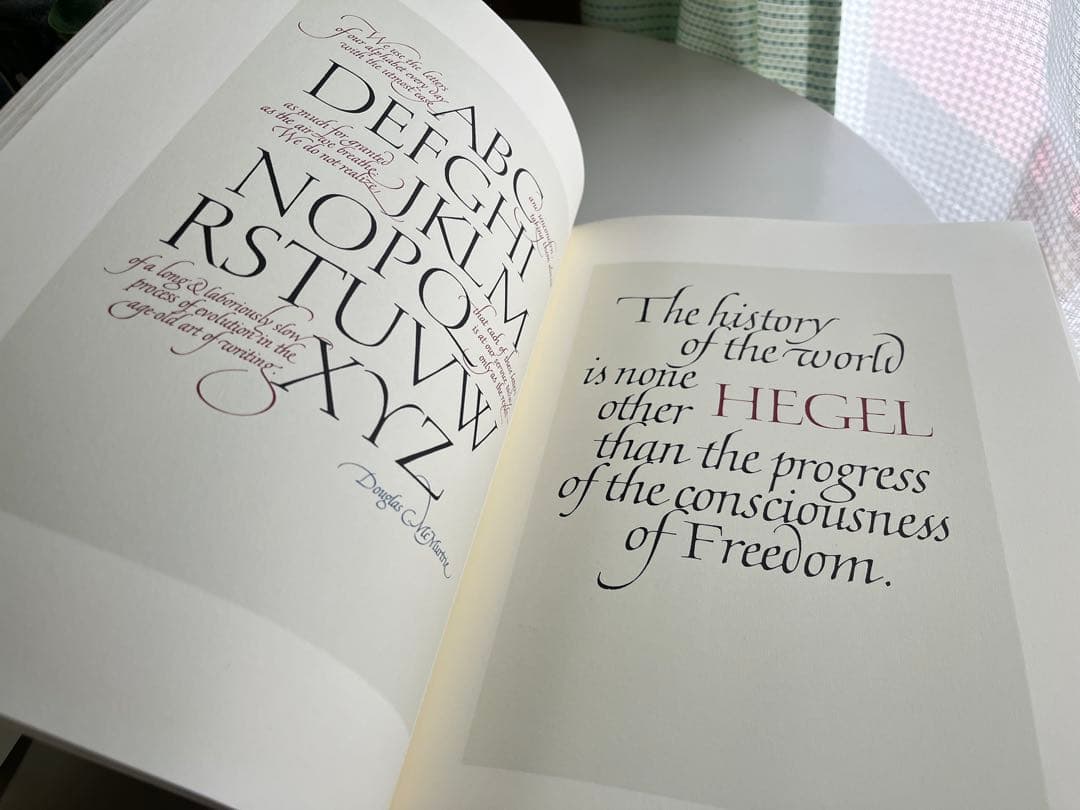 We use the letters
of our alphabet every day
with the utmost ease
ABC
and unconcern
DEFGHI
as much for granted
as the air we breathe
We do not realize
JKLM
NOPQ
that each of these letters
is at our service today
only as the result
RSTUVW
of a long & laboriously slow
process of evolution in the
age-old art of writing.
XYZ
Douglas C. McMurtrie
The history
of the world
is none
other HEGEL
than the progress
of the consciousness
of Freedom.